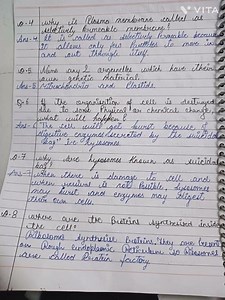 VITA
Q-4 Why is Plasma membrane called as
selectively permeable membrane?
Ans-4 It is called as selectively permeable because
it allows only few particles to move in
and out through itself.
Q-5 Name any 2 organelles which have their
own genetic material.
Ans-5 Mitochondria and Plastids.
Q-6 If the organisation of cell is destroyed
due to some Physical or chemical change,
what will happen?
Ans-6 The cell will get burst because of
digestive enzymes secreted by the suicidal
bag i.e lysosomes
Q-7 Why are lysosomes known as suicidal
bag?
Ans-7 When there is damage to cell and
when revival is not Possible, lysosomes
may burst and enzymes may digest
their own cell.
Q-8 where are the Proteins synthesised inside
the cell?
Ribosomes synthesise Proteins. They are
on Rough endoplasmic Reticulum so Ribosomes
are called Protein factory